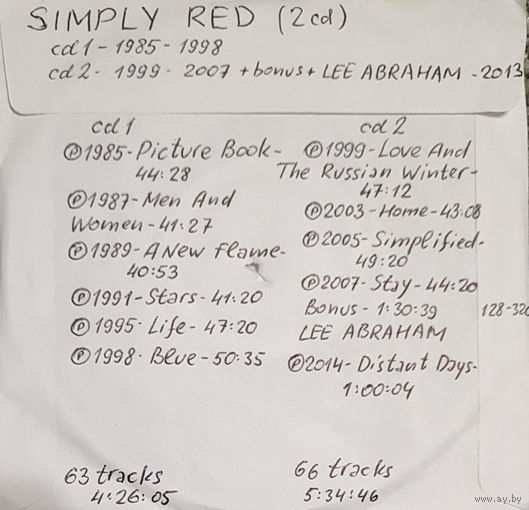 SIMPLY RED (2cd)
cd1 - 1985 - 1998
cd2 - 1999 - 2007 + bonus + LEE ABRAHAM - 2013
cd1
Ⓟ1985-Picture Book-
44:28
Ⓟ1987-Men And
Women-41:27
Ⓟ1989-A New Flame-
40:53
Ⓟ1991-Stars-41:20
Ⓟ1995-Life-47:20
Ⓟ1998-Blue-50:35
63 tracks
4:26:05
cd2
Ⓟ1999-Love And
The Russian Winter-
47:12
Ⓟ2003-Home-43:08
Ⓟ2005-Simplified-
49:20
Ⓟ2007-Stay-44:20
Bonus-1:30:39
128-320
LEE ABRAHAM
Ⓟ2014-Distant Days-
1:00:04
66 tracks
5:34:46
www.ay.by